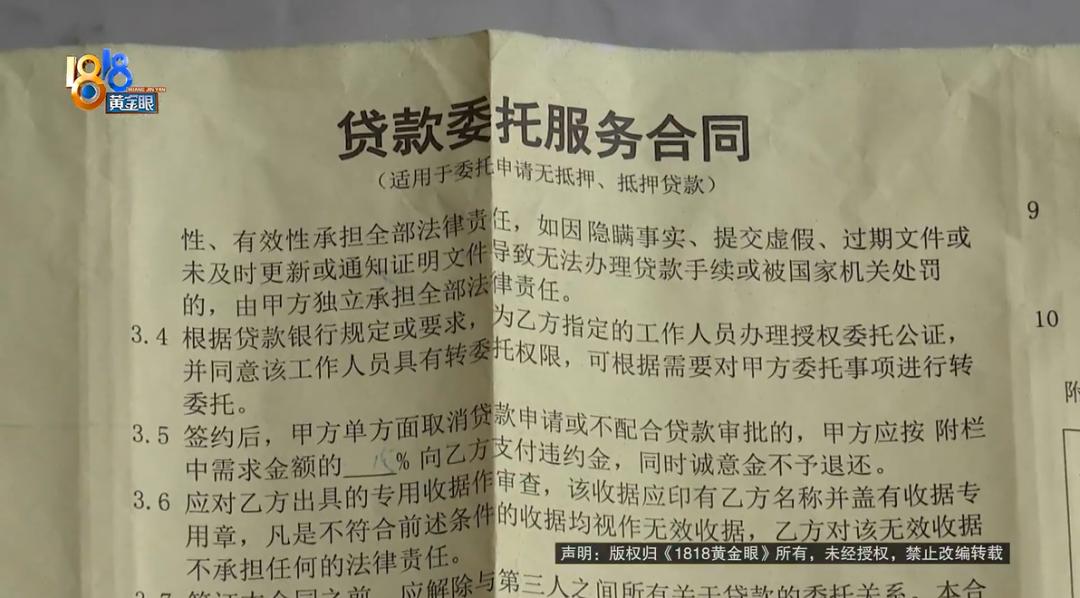 1818
HUANG JIN YAN
黄金眼
贷款委托服务合同
（适用于委托申请无抵押、抵押贷款）
性、有效性承担全部法律责任，如因隐瞒事实、提交虚假、过期文件或
未及时更新或通知证明文件导致无法办理贷款手续或被国家机关处罚
的，由甲方独立承担全部法律责任。
3.4 根据贷款银行规定或要求，为乙方指定的工作人员办理授权委托公证，
并同意该工作人员具有转委托权限，可根据需要对甲方委托事项进行转
委托。
3.5 签约后，甲方单方面取消贷款申请或不配合贷款审批的，甲方应按 附栏
中需求金额的 % 向乙方支付违约金，同时诚意金不予退还。
3.6 应对乙方出具的专用收据作审查，该收据应印有乙方名称并盖有收据专
用章，凡是不符合前述条件的收据均视作无效收据，乙方对该无效收据
不承担任何的法律责任。
3.7 签订本合同之前，应解除与第三人之间所有关于贷款的委托关系。本合
9
10
附
声明：版权归《1818黄金眼》所有，未经授权，禁止改编转载